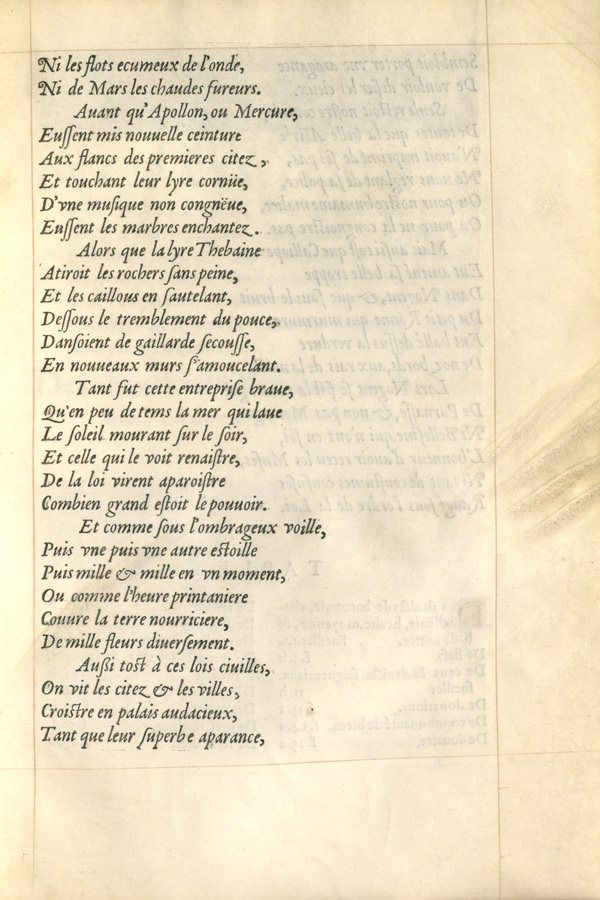 Ni les flots ecumeux de l'onde,
Ni de Mars les chaudes fureurs.
Auant qu'Apollon, ou Mercure,
Eussent mis nouuelle ceinture
Aux flancs des premieres citez,
Et touchant leur lyre cornüe,
D'vne musique non congnëue,
Eussent les marbres enchantez.
Alors que la lyre Thebaine
Atiroit les rochers sans peine,
Et les caillous en sautelant,
Dessous le tremblement du pouce,
Dansoient de gaillarde secousse,
En nouueaux murs s'amoucelant.
Tant fut cette entreprise braue,
Qu'en peu de tems la mer qui laue
Le soleil mourant sur le soir,
Et celle qui le voit renaistre,
De la loi virent aparoistre
Combien grand estoit le pouuoir.
Et comme sous l'ombrageux voille,
Puis vne puis vne autre estoille
Puis mille & mille en vn moment,
Ou comme l'heure printaniere
Couure la terre nourriciere,
De mille fleurs diuersement.
Aussi tost à ces lois ciuilles,
On vit les citez & les villes,
Croistre en palais audacieux,
Tant que leur superbe aparance,